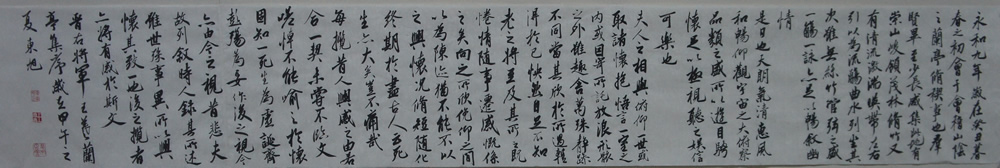 永和九年歲在癸丑暮
春之初會于會稽山陰
之蘭亭脩禊事也群
賢畢至少長咸集此地有
崇山峻領茂林脩竹又
有清流激湍暎帶左右
引以為流觴曲水列坐其
次雖無絲竹管弦之盛
一觴一詠亦足以暢敘幽
情
是日也天朗氣清惠風
和暢仰觀宇宙之大俯察
品類之盛所以遊目騁
懷足以極視聽之娛信
可樂也
夫人之相與俯仰一世或
取諸懷抱悟言一室之
內或因寄所託放浪形骸
之外雖趣舍萬殊靜躁
不同當其欣於所遇暫
得於己快然自足不知
老之將至及其所之既
惓情隨事遷感慨係
之矣向之所欣俛仰之間
以為陳迹猶不能不以
之興懷況脩短隨化
終期於盡古人云死
生亦大矣豈不痛哉
每攬昔人興感之由若
合一契未嘗不臨文
嗟悼不能喻之於懷
固知一死生為虛誕齊
彭殤為妄作後之視今
亦由今之視昔悲夫
故列敘時人錄其所述
雖世殊事異所以興
懷其致一也後之攬者
亦將有感於斯文
書右將軍王羲之蘭
亭集序歲在甲午之
夏東旭